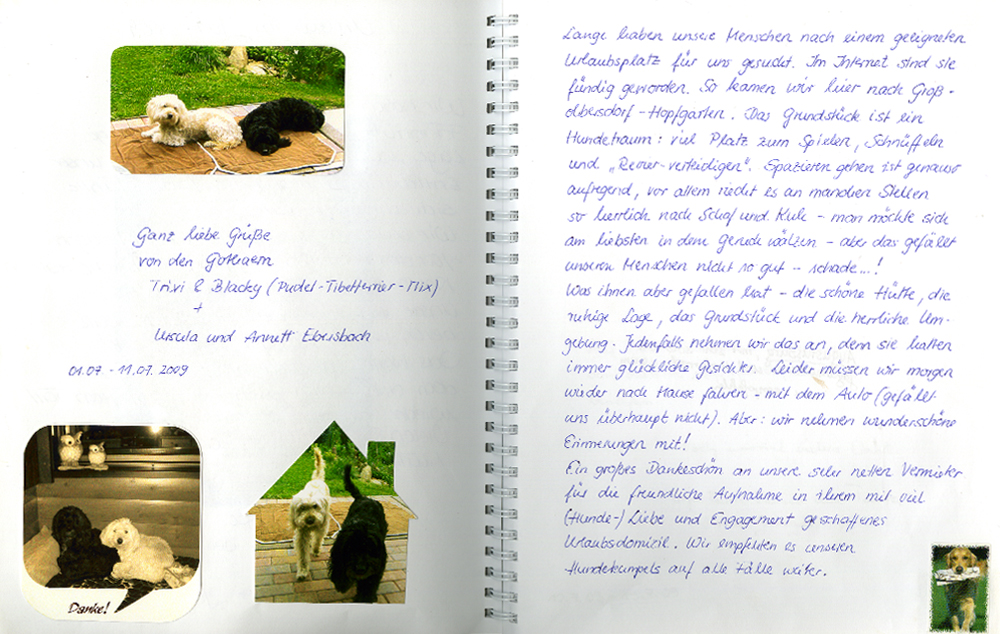 Ganz liebe Grüße
von den Gotharern
Trixi & Blacky (Pudel-Tibetterrier-Mix)
+
Ursula und Annett Ebersbach
01.07. - 11.07. 2009
Danke!
Lange haben unsere Menschen nach einem geeigneten
Urlaubsplatz für uns gesucht. Im Internet sind sie
fündig geworden. So kamen wir hier nach Groß-
olbersdorf-Hopfgarten. Das Grundstück ist ein
Hundetraum: viel Platz zum Spielen, Schnüffeln
und „Revier-verteidigen". Spazieren gehen ist genauso
aufregend, vor allem riecht es an manchen Stellen
so herrlich nach Schaf und Kuh - man möchte sich
am liebsten in dem Geruch wälzen - aber das gefällt
unseren Menschen nicht so gut - schade...!
Was ihnen aber gefallen hat - die schöne Hütte, die
ruhige Lage, das Grundstück und die herrliche Um-
gebung. Jedenfalls nehmen wir das an, denn sie hatten
immer glückliche Gesichter. Leider müssen wir morgen
wieder nach Hause fahren - mit dem Auto (gefällt
uns überhaupt nicht). Aber: wir nehmen wunderschöne
Erinnerungen mit!
Ein großes Dankeschön an unsere sehr netten Vermieter
für die freundliche Aufnahme in ihrem mit viel
(Hunde-) Liebe und Engagement geschaffenes
Urlaubsdomizil. Wir empfehlen es unseren
Hundekumpels auf alle Fälle weiter.